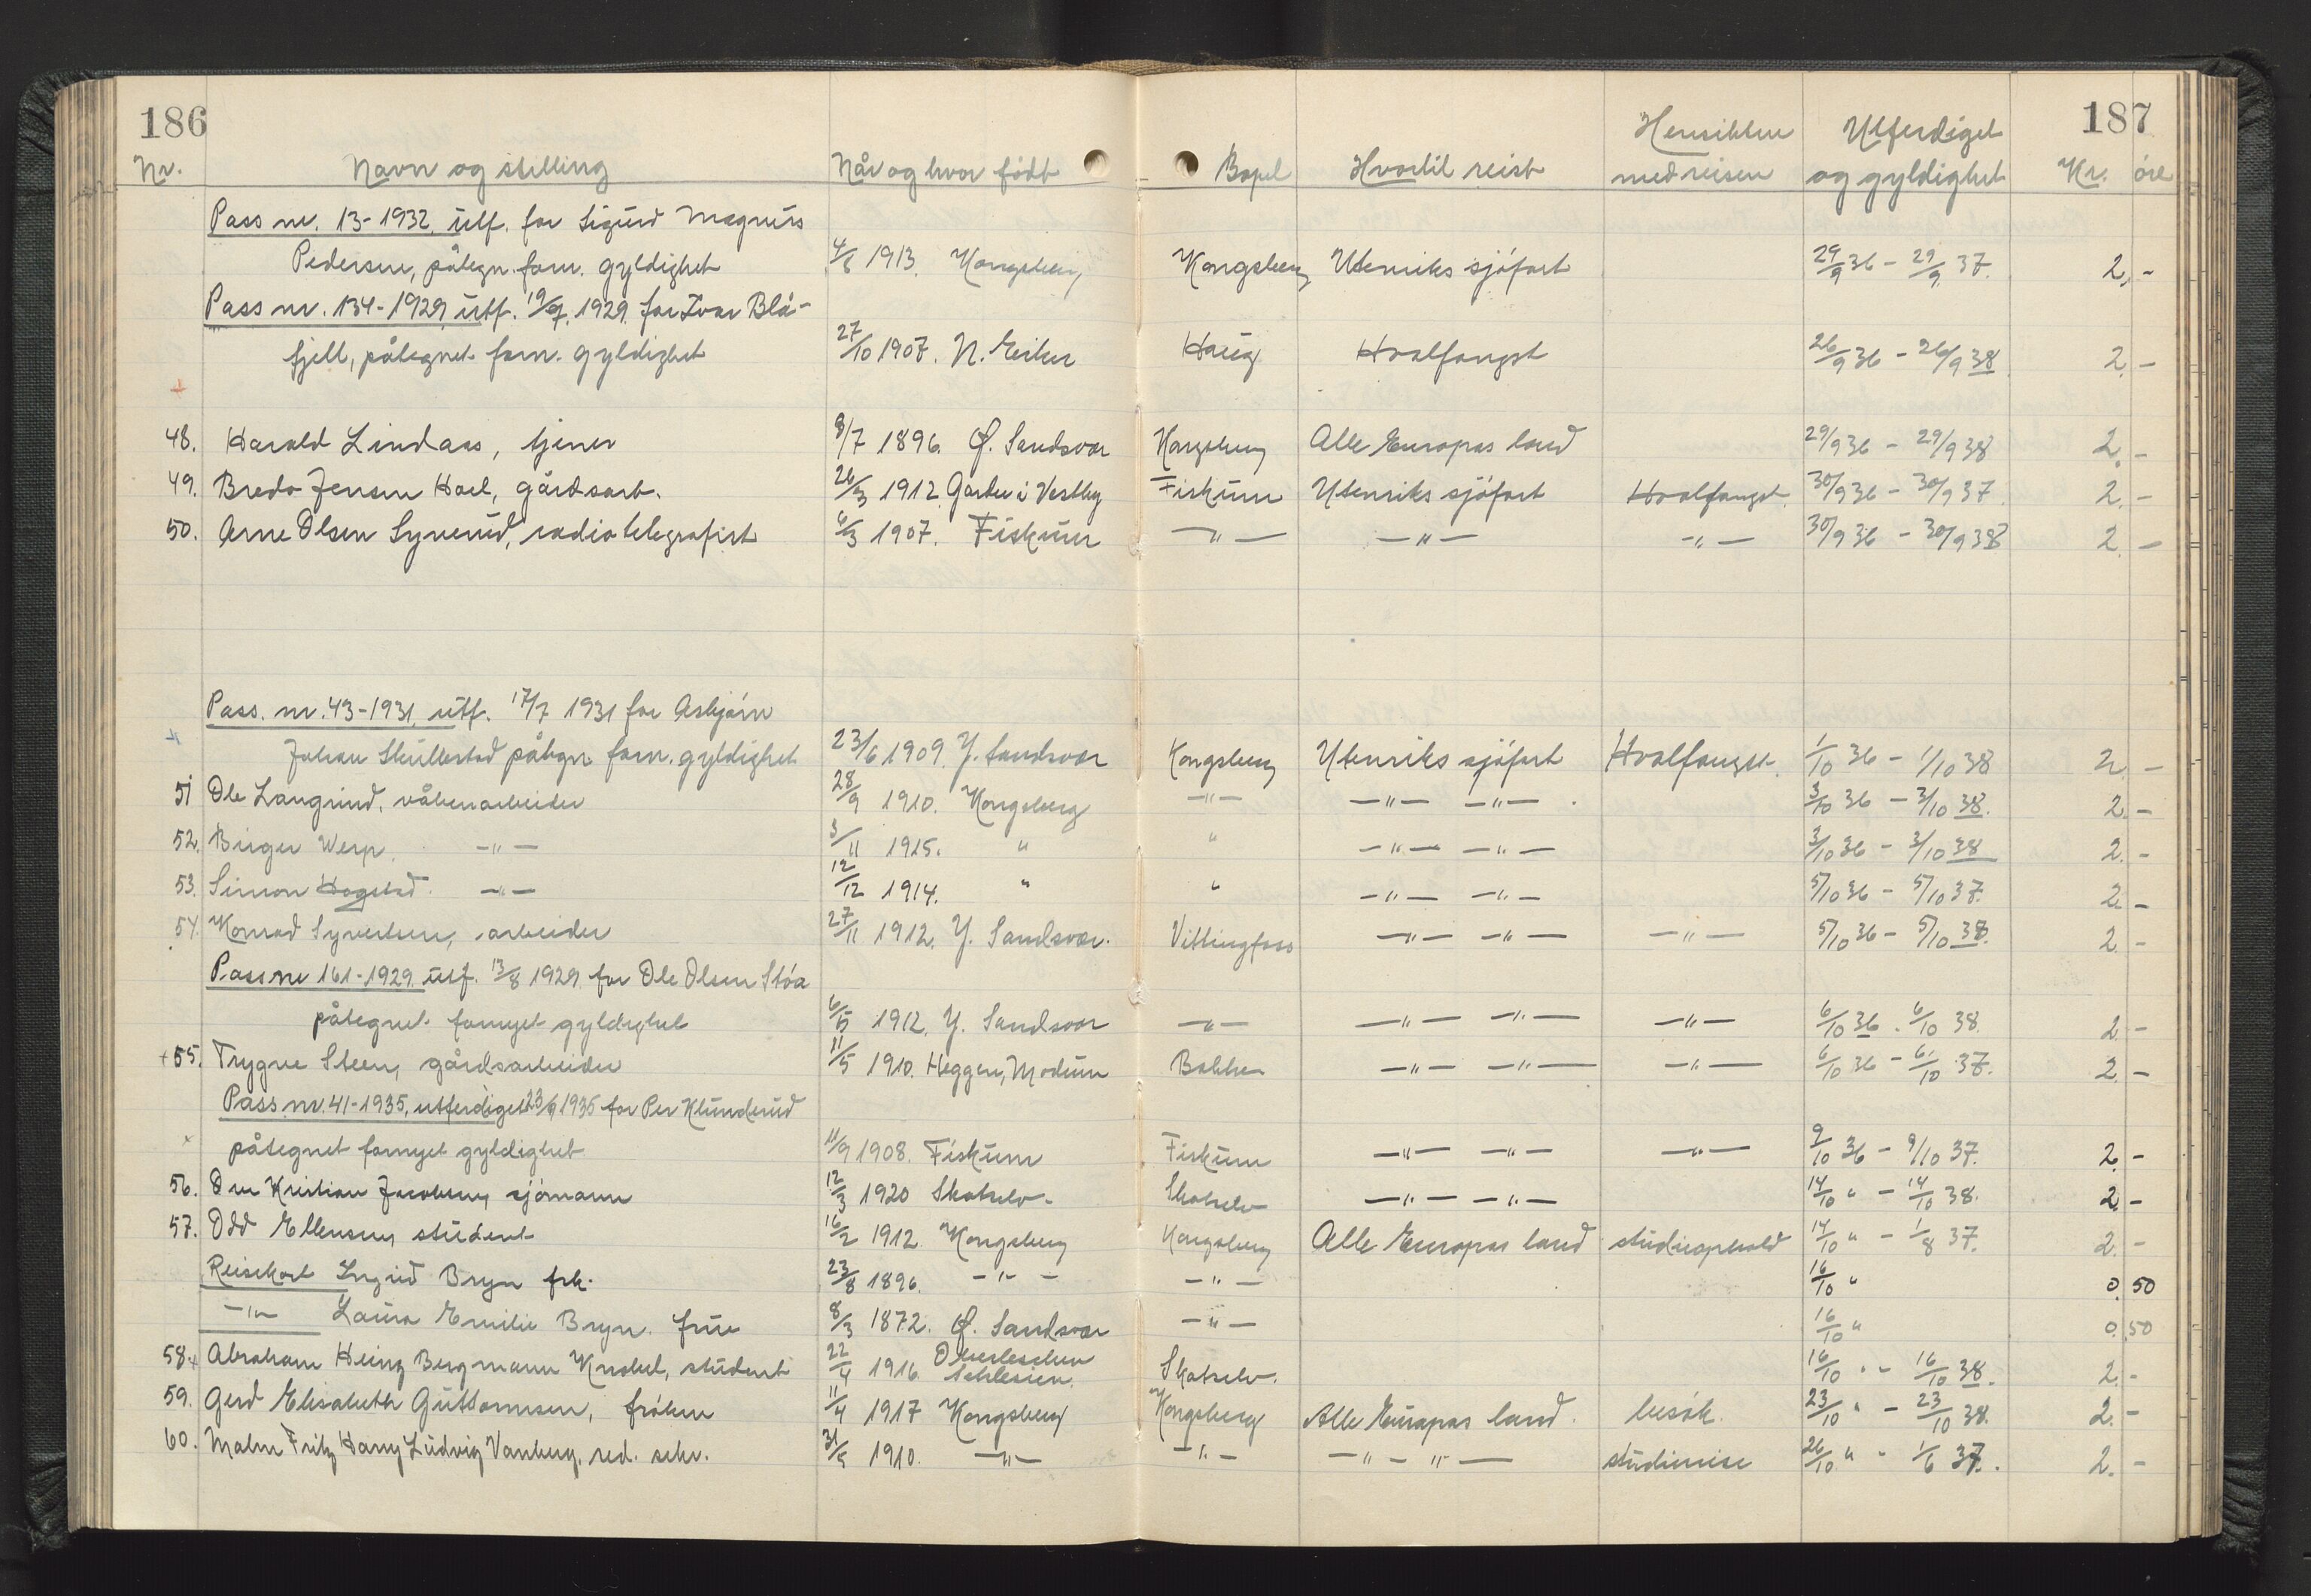 186 187
Nr. Navn og stilling Når og hvor födt Bopel Hvortil reist Hensikten med reisen Utferdiget og gyldighet Kr. öre
Pass nr. 13-1932. utf. for Sigurd Magnus
Pedersen, påtegn. forn. gyldighet 4/6 1913. Kongsberg Kongsberg Utenriks sjöfart 29/9 36 - 29/9 37. 2,-
Pass nr. 134-1929 utf. 19/7. 1929 for Ivar Blå-
fjell, påtegnet forn. gyldighet 27/10 1907. N. Eiker Haug Hvalfangst 26/9 36 - 26/9 38 2.-
48. Harald Lindaas, tjener 8/7 1896. Ø. Sandsvær Kongsberg Alle Europas land 29/9 36 - 29/9 38 2.-
49. Bredo Jensen Hoel, gårdsarb. 26/3 1912 Garder i Vestby Fiskum Utenriks sjöfart Hvalfangst. 30/9 36 - 30/9 37. 2.-
50. Arne Olsen Syverud, radiotelegrafist 6/3 1907. Fiskum -"- -"- -"- 30/9 36 - 30/9 38 2.-
Pass. nr. 43-1931, utf. 17/7 1931 for Asbjörn
Johan Skullestad påtegn. forn. gyldighet 23/6 1909. Y. Sandsvær Kongsberg Utenriks sjöfart Hvalfangst. 1/10 36 - 1/10 38 2.-
51 Ole Langrind, våbenarbeider 28/9 1910. Kongsberg -"- -"- -"- 3/10 36 - 3/10 38. 2.-
52. Birger Werp. -"- 3/11 1915. " " -"- -"- 3/10 36 - 3/10 38 2.-
53. Simon Hogstad. -"- 12/12 1914. " " -"- -"- 5/10 36 - 5/10 37. 2.-
54. Konrad Syvertsen, arbeider 27/11 1912. Y. Sandsvær. Vittingfoss -"- -"- -"- 5/10 36 - 5/10 38. 2.-
Pass nr 161-1929. utf. 13/8 1929 for Ole Olsen Stöa
påtegnet fornyet gyldighet 6/5 1912. Y. Sandsvær -"- -"- -"- -"- 6/10 36. 6/10 38. 2.-
+55. Trygve Steen, gårdsarbeider 11/5 1910. Heggen, Modum Bakke -"- -"- -"- 6/10 36 - 6/10 37. 2.-
Pass nr. 41-1935, utferdiget 23/9 1935 for Per Klunderud
x påtegnet fornyet gyldighet 11/9 1908. Fiskum Fiskum -"- -"- -"- 9/10 36 - 9/10 37. 2.-
56. Kristian Jacobsen, sjömann 12/3 1920 Skotselv. Skotselv -"- -"- 14/10 " - 14/10 38. 2.-
57. Odd Ellensen, student 16/2 1912 Kongsberg Kongsberg Alle Europas land studieophold 14/10 " - 1/8 37. 2.-
Reisekort Ingrid Bryn frk. 23/8 1896. -"- -"- 16/10 " 0.50
-"- Laura Emilie Bryn. frue 8/3 1872. Ø. Sandsvær -"- 16/10 " 0.50
58.+ Abraham Heinz Bergmann student 22/4 1916. Schlesien. Skotselv. 16/10 " - 16/10 38. 2.-
59. Gerd Elisabeth Guttormsen, fröken 11/4 1917 Kongsberg Kongsberg Alle Europas land. besök. 23/10 " - 23/10 38. 2.-
60. Malm Fritz Harry Ludvig Vanberg, red. sekr. 31/5 1910. -"- -"- -"- -"- studiereise 26/10 " - 1/6 37. 2.-